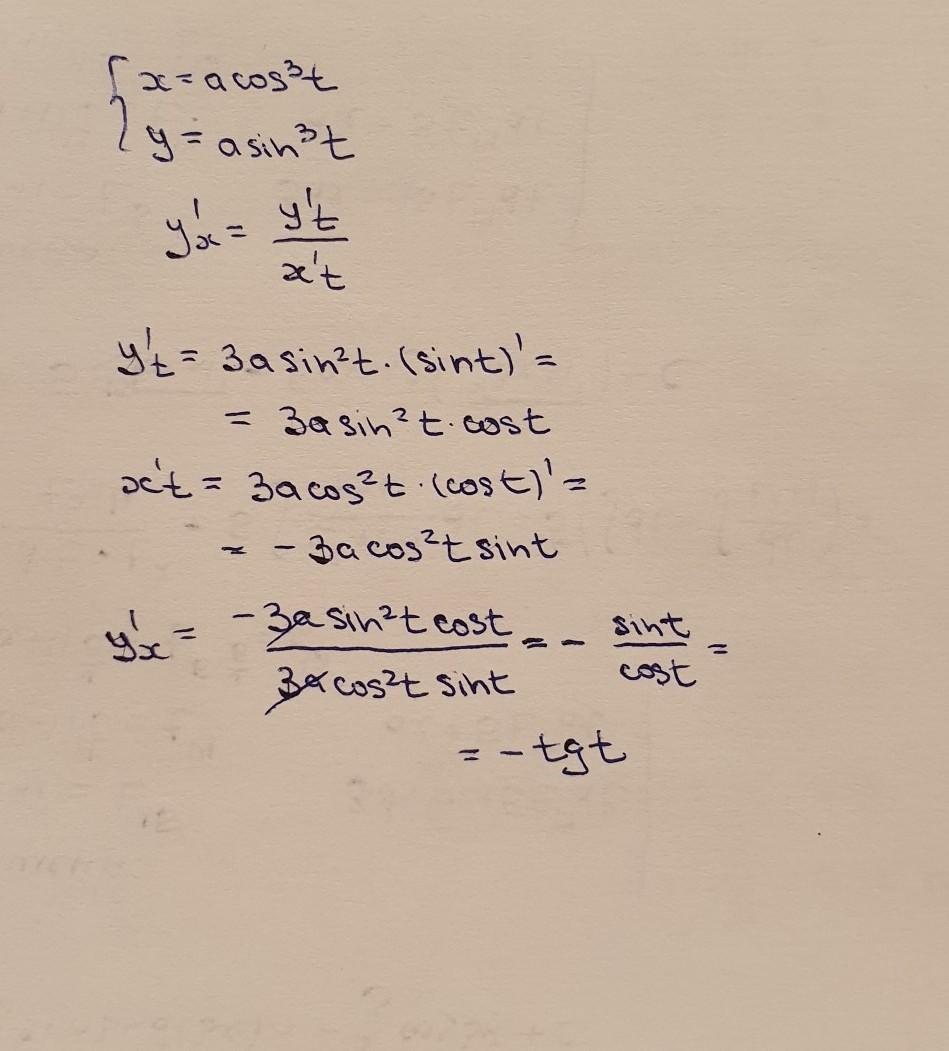 { x = a cos³t
y = a sin³t
y'x = y't / x't
y't = 3a sin²t · (sin t)' =
= 3a sin²t · cos t
x't = 3a cos²t · (cos t)' =
= - 3a cos²t sin t
y'x = -3a sin²t cos t / 3a cos²t sin t = - sin t / cos t =
= - tg t